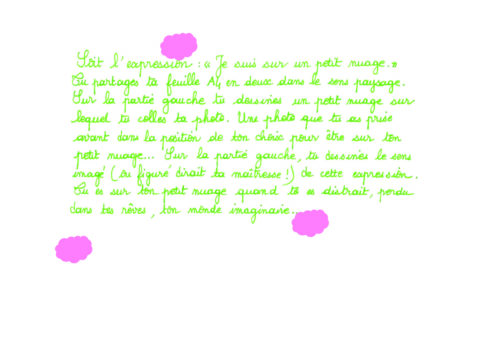 Soit l'expression : « Je suis sur un petit nuage. »
Tu partages ta feuille A4 en deux dans le sens paysage.
Sur la partie gauche tu dessines un petit nuage sur
lequel tu colles ta photo. Une photo que tu as prise
avant dans la position de ton choix pour être sur ton
petit nuage... Sur la partie gauche, tu dessines le sens
imagé (ou figuré dirait ta maîtresse !) de cette expression.
Tu es sur ton petit nuage quand tu es distrait, perdu
dans tes rêves, ton monde imaginaire.